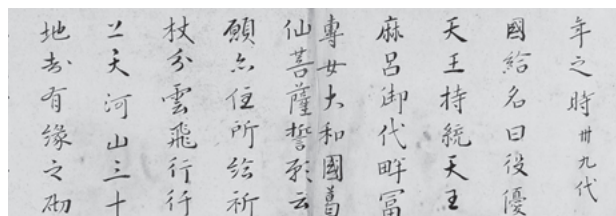 年之時卅九代
國給名曰役優
天王持統天王
麻呂御代畔冨
專女大和國葛
仙菩薩誓願云
願尓住所給祈
杖分雲飛行行
上天河山三十
地去有緣之砌